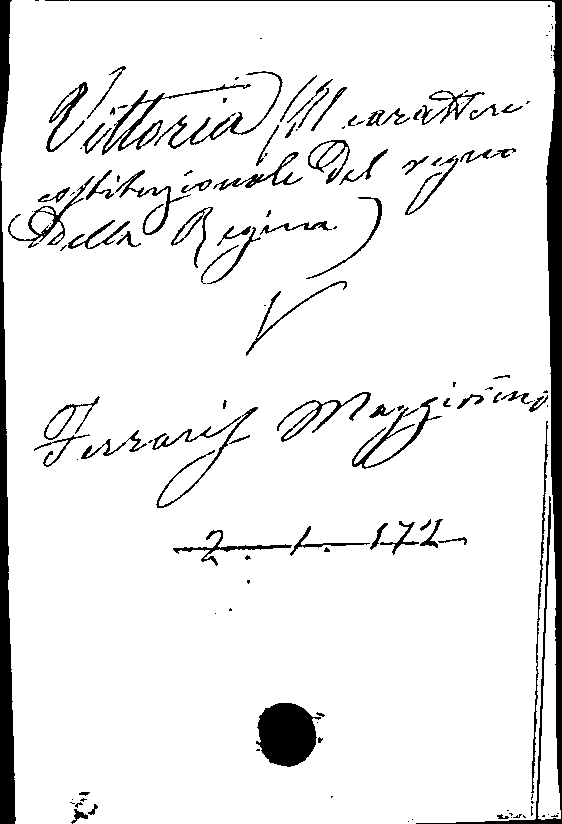 Vittoria (Il carattere
costituzionale del regno
della Regina)
V
Ferraris Maggiorino
2. 1. 172